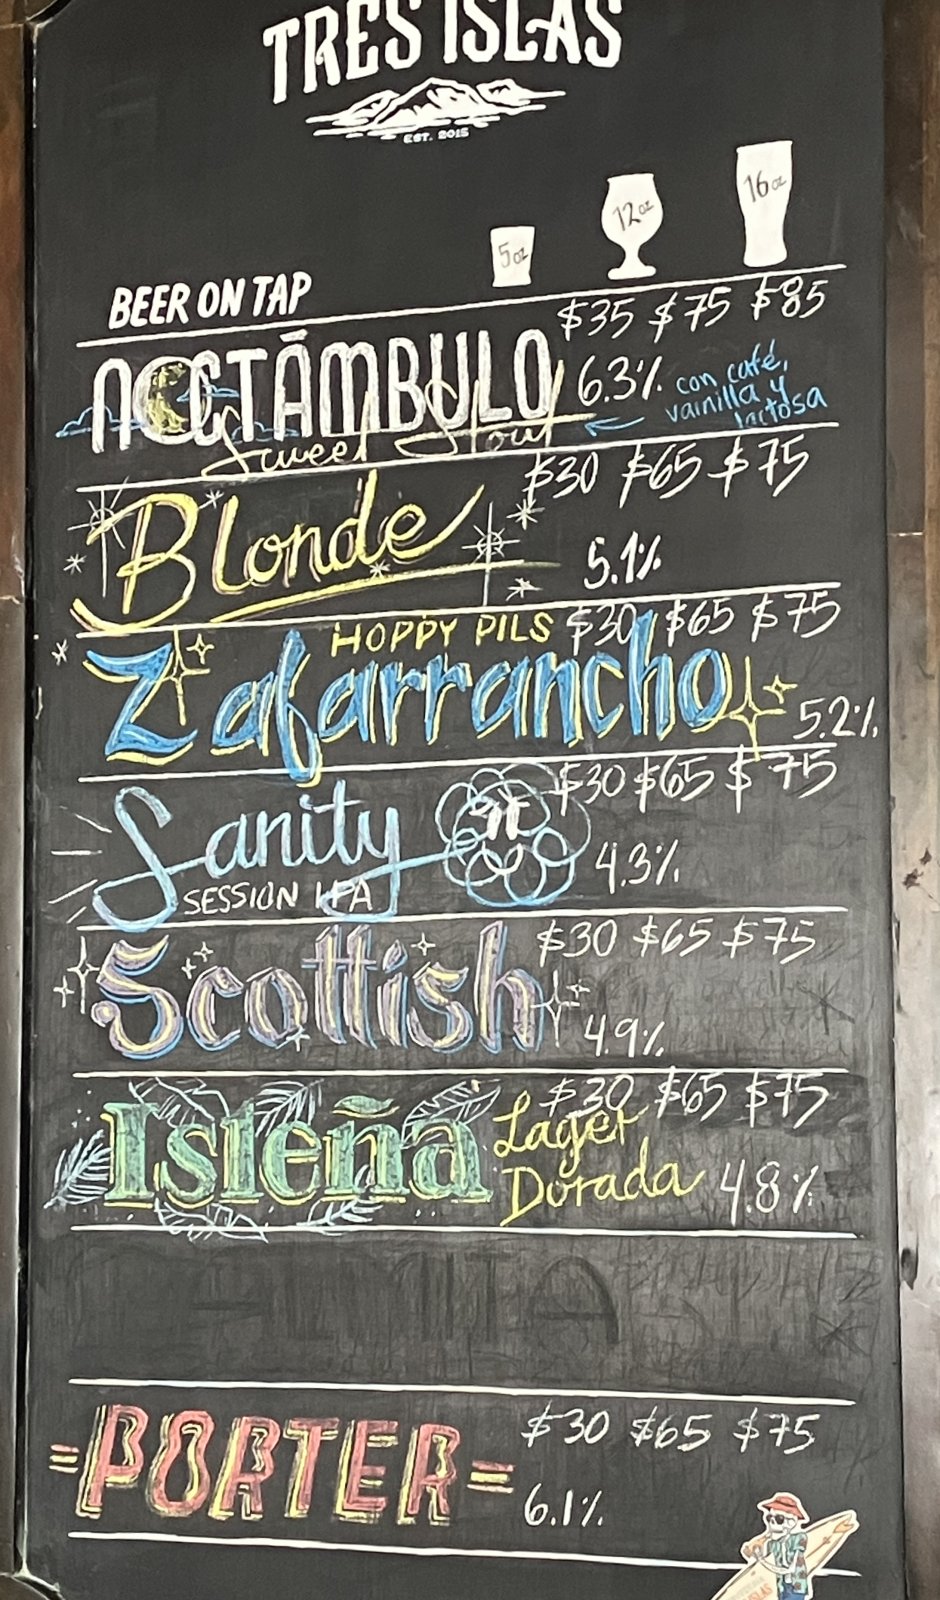 TRES ISLAS
EST. 2015
5oz 12oz 16oz
BEER ON TAP
$35 $75 $85
NOCTÁMBULO 6.3%
Sweet Stout
con café,
vainilla y
lactosa
$30 $65 $75
Blonde
5.1%
HOPPY PILS $30 $65 $75
Zafarrancho
5.2%
$30 $65 $75
Sanity 4.3%
SESSION IPA
$30 $65 $75
Scottish
4.9%
$30 $65 $75
Isleña Lager
Dorada 4.8%
PORTER $30 $65 $75
6.1%